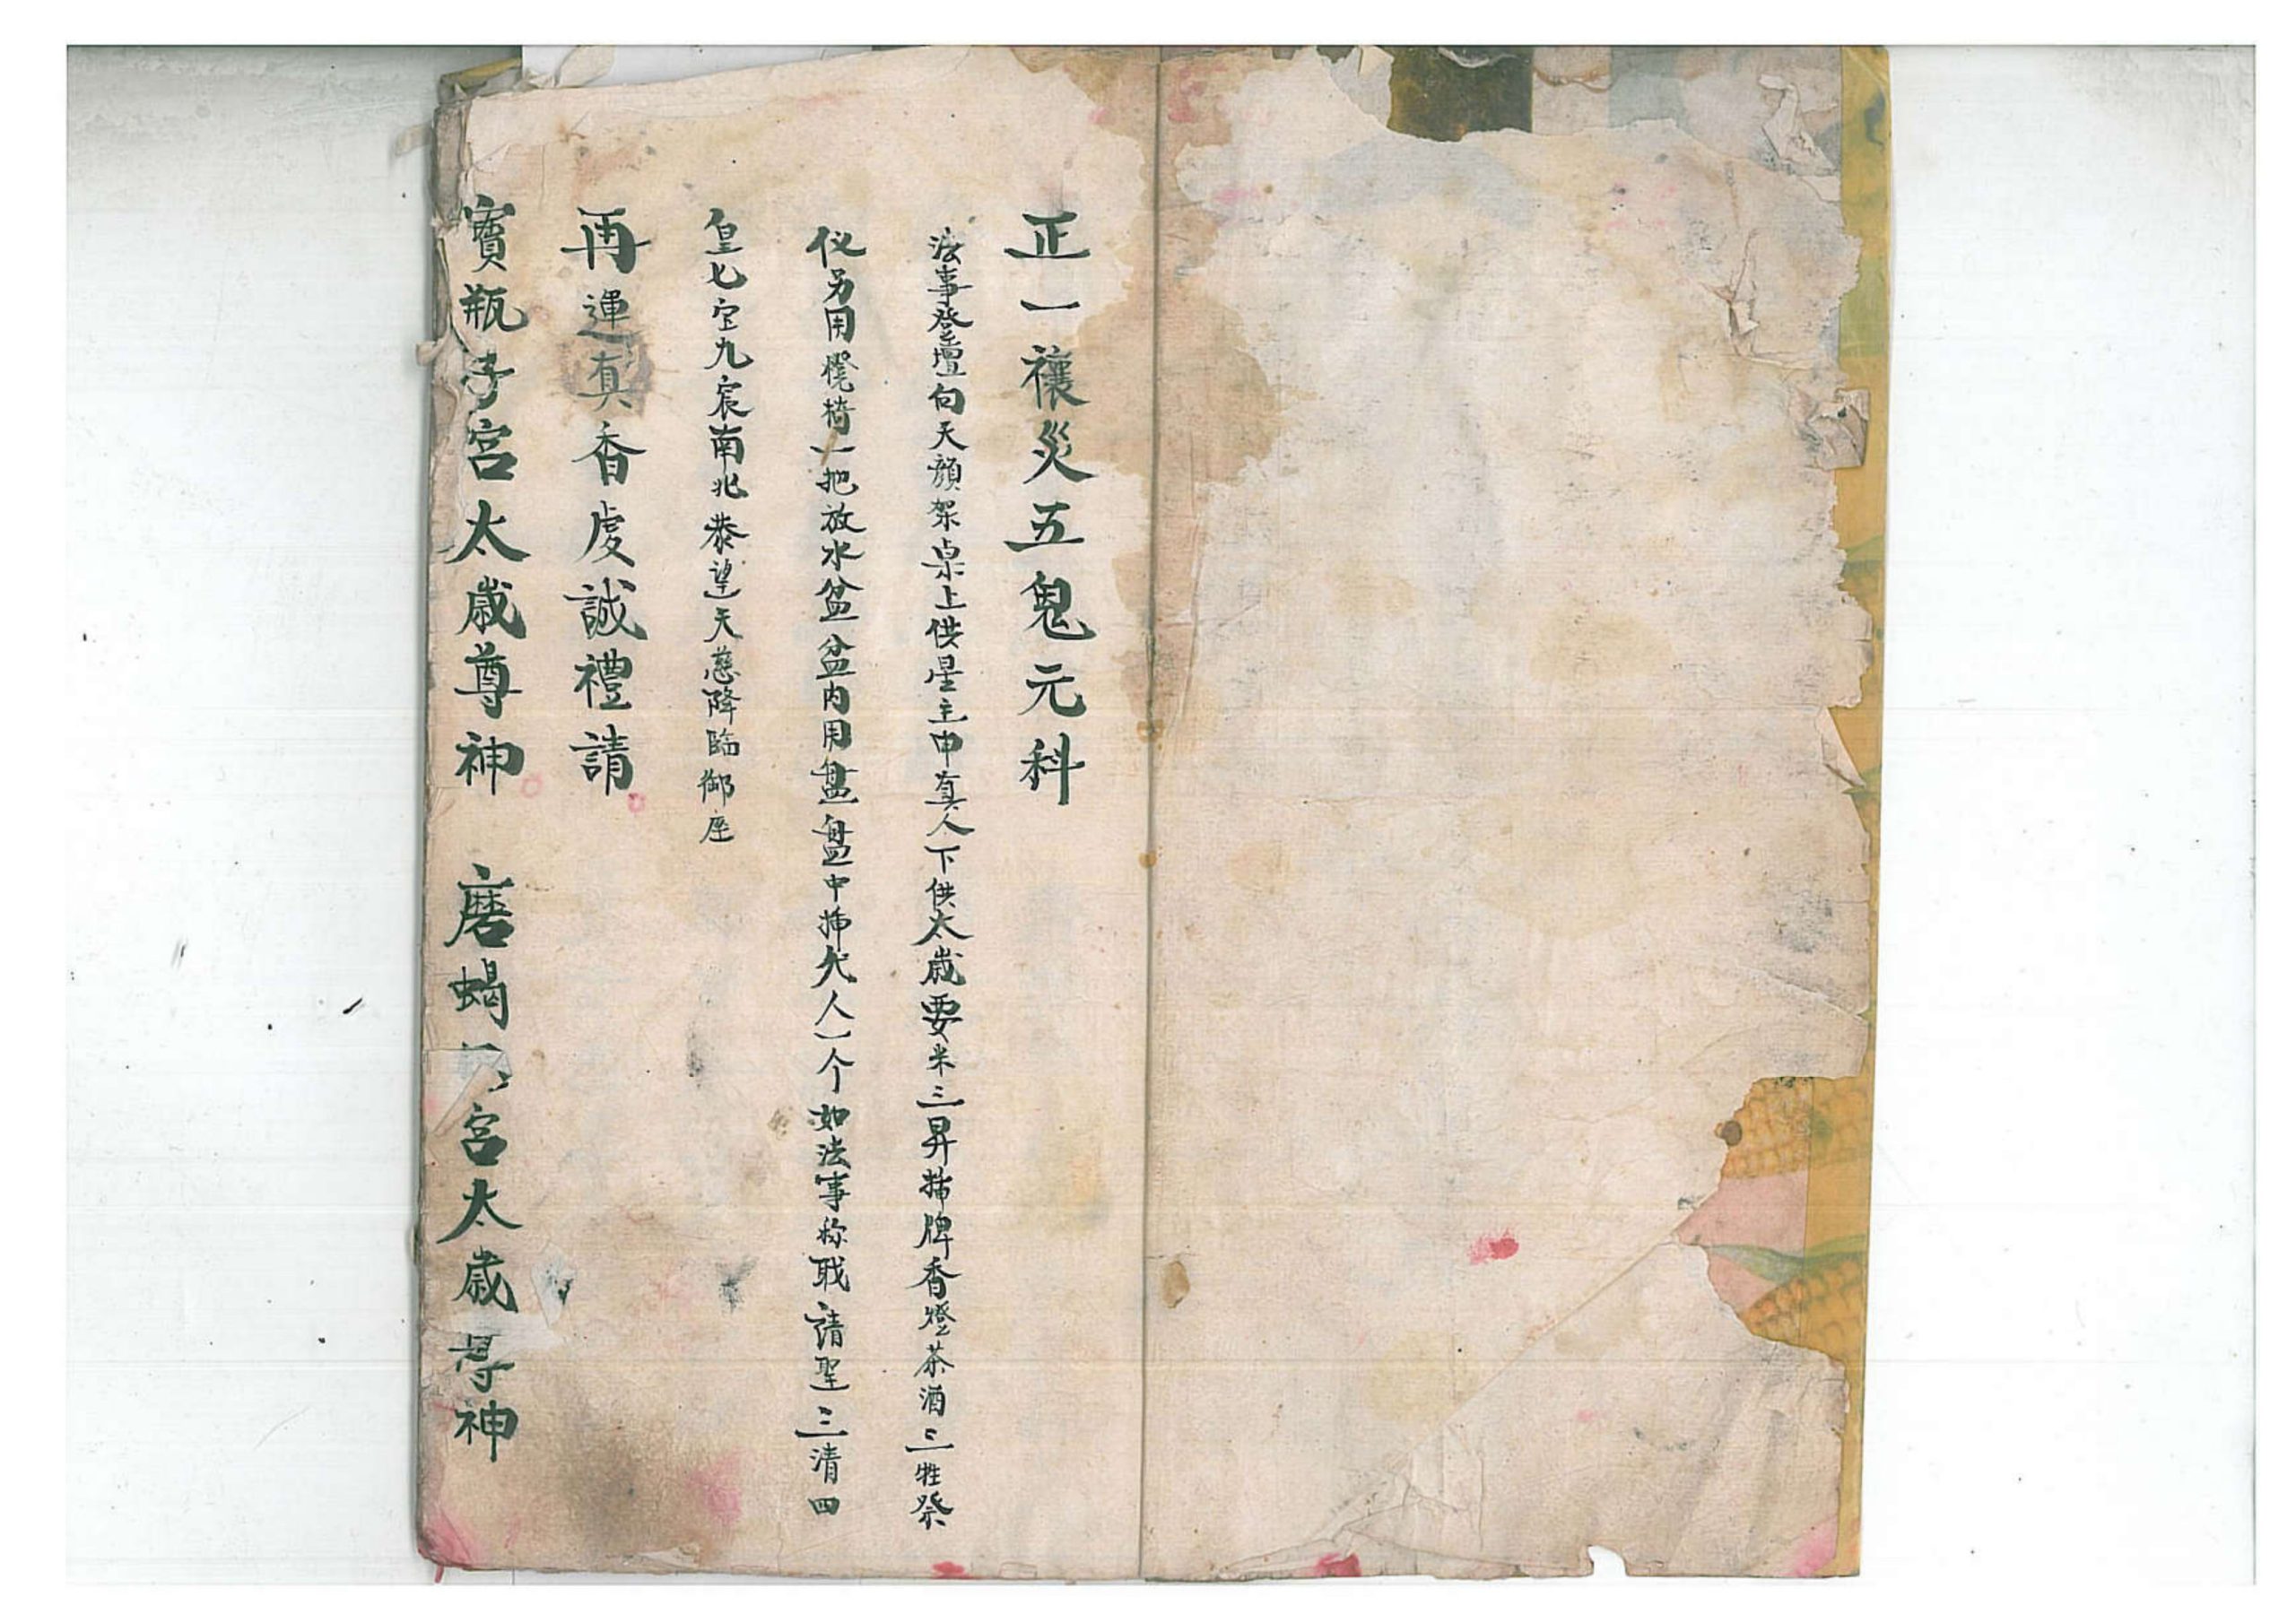 正一禳災五鬼元科
法事登壇向天顔架桌上供星主中真人下供太歲要米三昇揷牌香燈茶酒三牲祭
仪另用櫈椅一把放水盆盆内用盘盘中揷代人一个如法事称職請聖三清四
皇七宝九宸南北恭望天慈降臨御座
再運真香虔誠禮請
寳瓶子宮太歲尊神　磨蝎宮太歲尊神